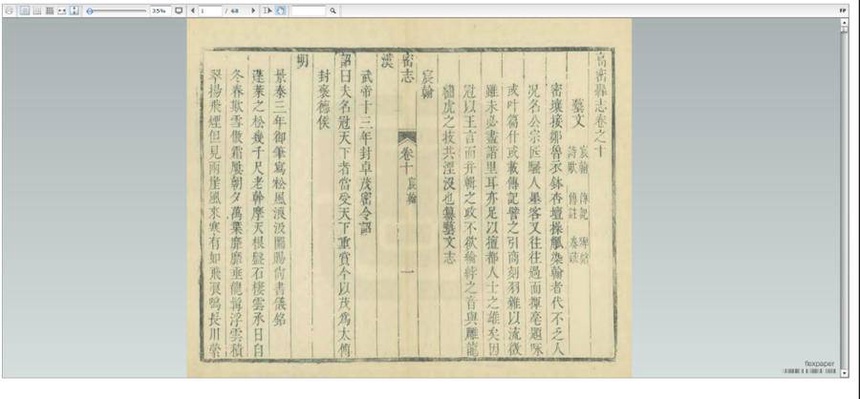 35%
1
/ 68
FP
高密縣志卷之十
藝文 宸翰 傳記 碑銘
詩歌 傳註
密壤接鄒魯衣鉢杏壇操觚染翰者代不乏人
況名公宗匠騷人墨客又往往過而揮毫題咏
或叶篇什或載傳記譬之引商刻羽雜以流徵
雖未必盡諧里耳亦足以擅都人士之雄矣因
冠以王言而并輯之政不欲綸綍之音與雕龍
繡虎之技共湮沒也纂藝文志
宸翰
密志
卷十
宸翰
一
漢
武帝十三年封卓茂密令詔
詔曰夫名冠天下者當受天下重賞今以茂為太傅
封褒德侯
明
景泰三年御筆寫松風 圖賜尚書儀銘
蓬萊之松幾千尺老幹摩天根盤石棲雲承日自
冬春欺雪傲霜屢朝夕萬葉靡靡垂龍 浮雲積
翠揚飛煙但見兩崖風來寒有如飛 鳴長川
flexpaper